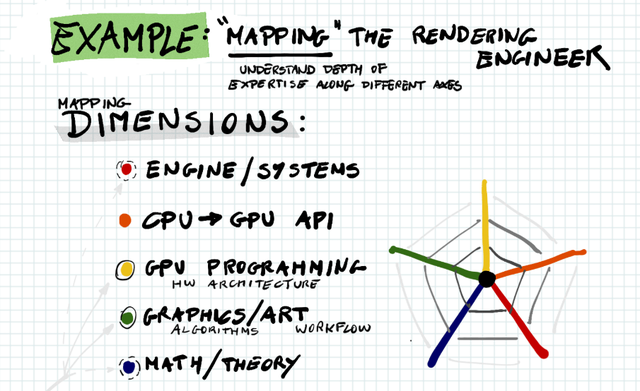 EXAMPLE: "MAPPING" THE RENDERING
ENGINEER
UNDERSTAND DEPTH OF
EXPERTISE ALONG DIFFERENT AXES
MAPPING
DIMENSIONS:
ENGINE/SYSTEMS
CPU → GPU API
GPU PROGRAMMING
HW ARCHITECTURE
GRAPHICS/ART
ALGORITHMS WORKFLOW
MATH/THEORY